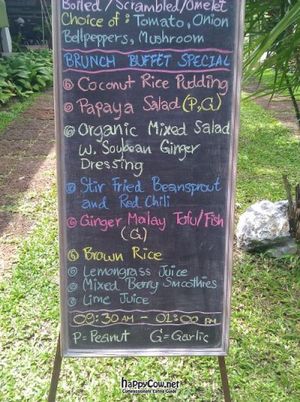 Boiled/Scrambled/Omelet
Choice of: Tomato, Onion
Bellpeppers, Mushroom
BRUNCH BUFFET SPECIAL
Coconut Rice Pudding
Papaya Salad (P, G)
Organic Mixed Salad
w. Soybean Ginger
Dressing
Stir Fried Beansprout
and Red Chili
Ginger Malay Tofu/Fish
(G)
Brown Rice
Lemongrass Juice
Mixed Berry Smoothies
Lime Juice
09:30 AM - 01:00 PM
P=Peanut G=Garlic
HappyCow.net
Compassionate Eating Guide